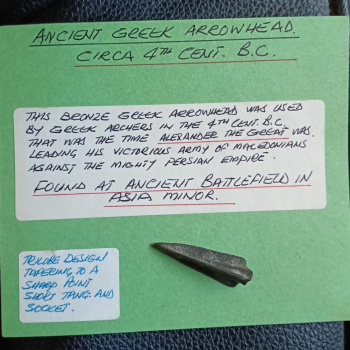 ANCIENT GREEK ARROWHEAD
CIRCA 4TH CENT. B.C.
THIS BRONZE GREEK ARROWHEAD WAS USED
BY GREEK ARCHERS IN THE 4TH CENT. B.C.
THAT WAS THE TIME ALEXANDER THE GREAT WAS
LEADING HIS VICTORIOUS ARMY OF MACEDONIANS
AGAINST THE MIGHTY PERSIAN EMPIRE.
FOUND AT ANCIENT BATTLEFIELD IN
ASIA MINOR.
TRILOBE DESIGN
TAPERING TO A
SHARP POINT
SHORT TANG AND
SOCKET.